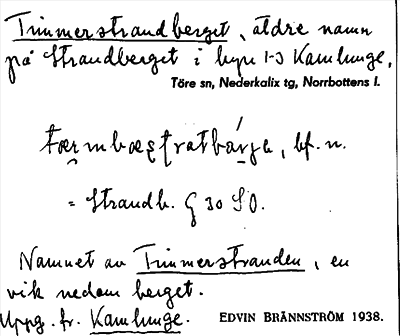 Timmerstrandberget, äldre namn
på Strandberget i byn 1-3 Kamlunge,
Töre sn, Nederkalix tg, Norrbottens l.
bf. n.
= Strandb. G 30 SO.
Namnet av Timmerstranden, en
vik nedom berget.
Uppg. fr. Kamlunge. EDVIN BRÄNNSTRÖM 1938.